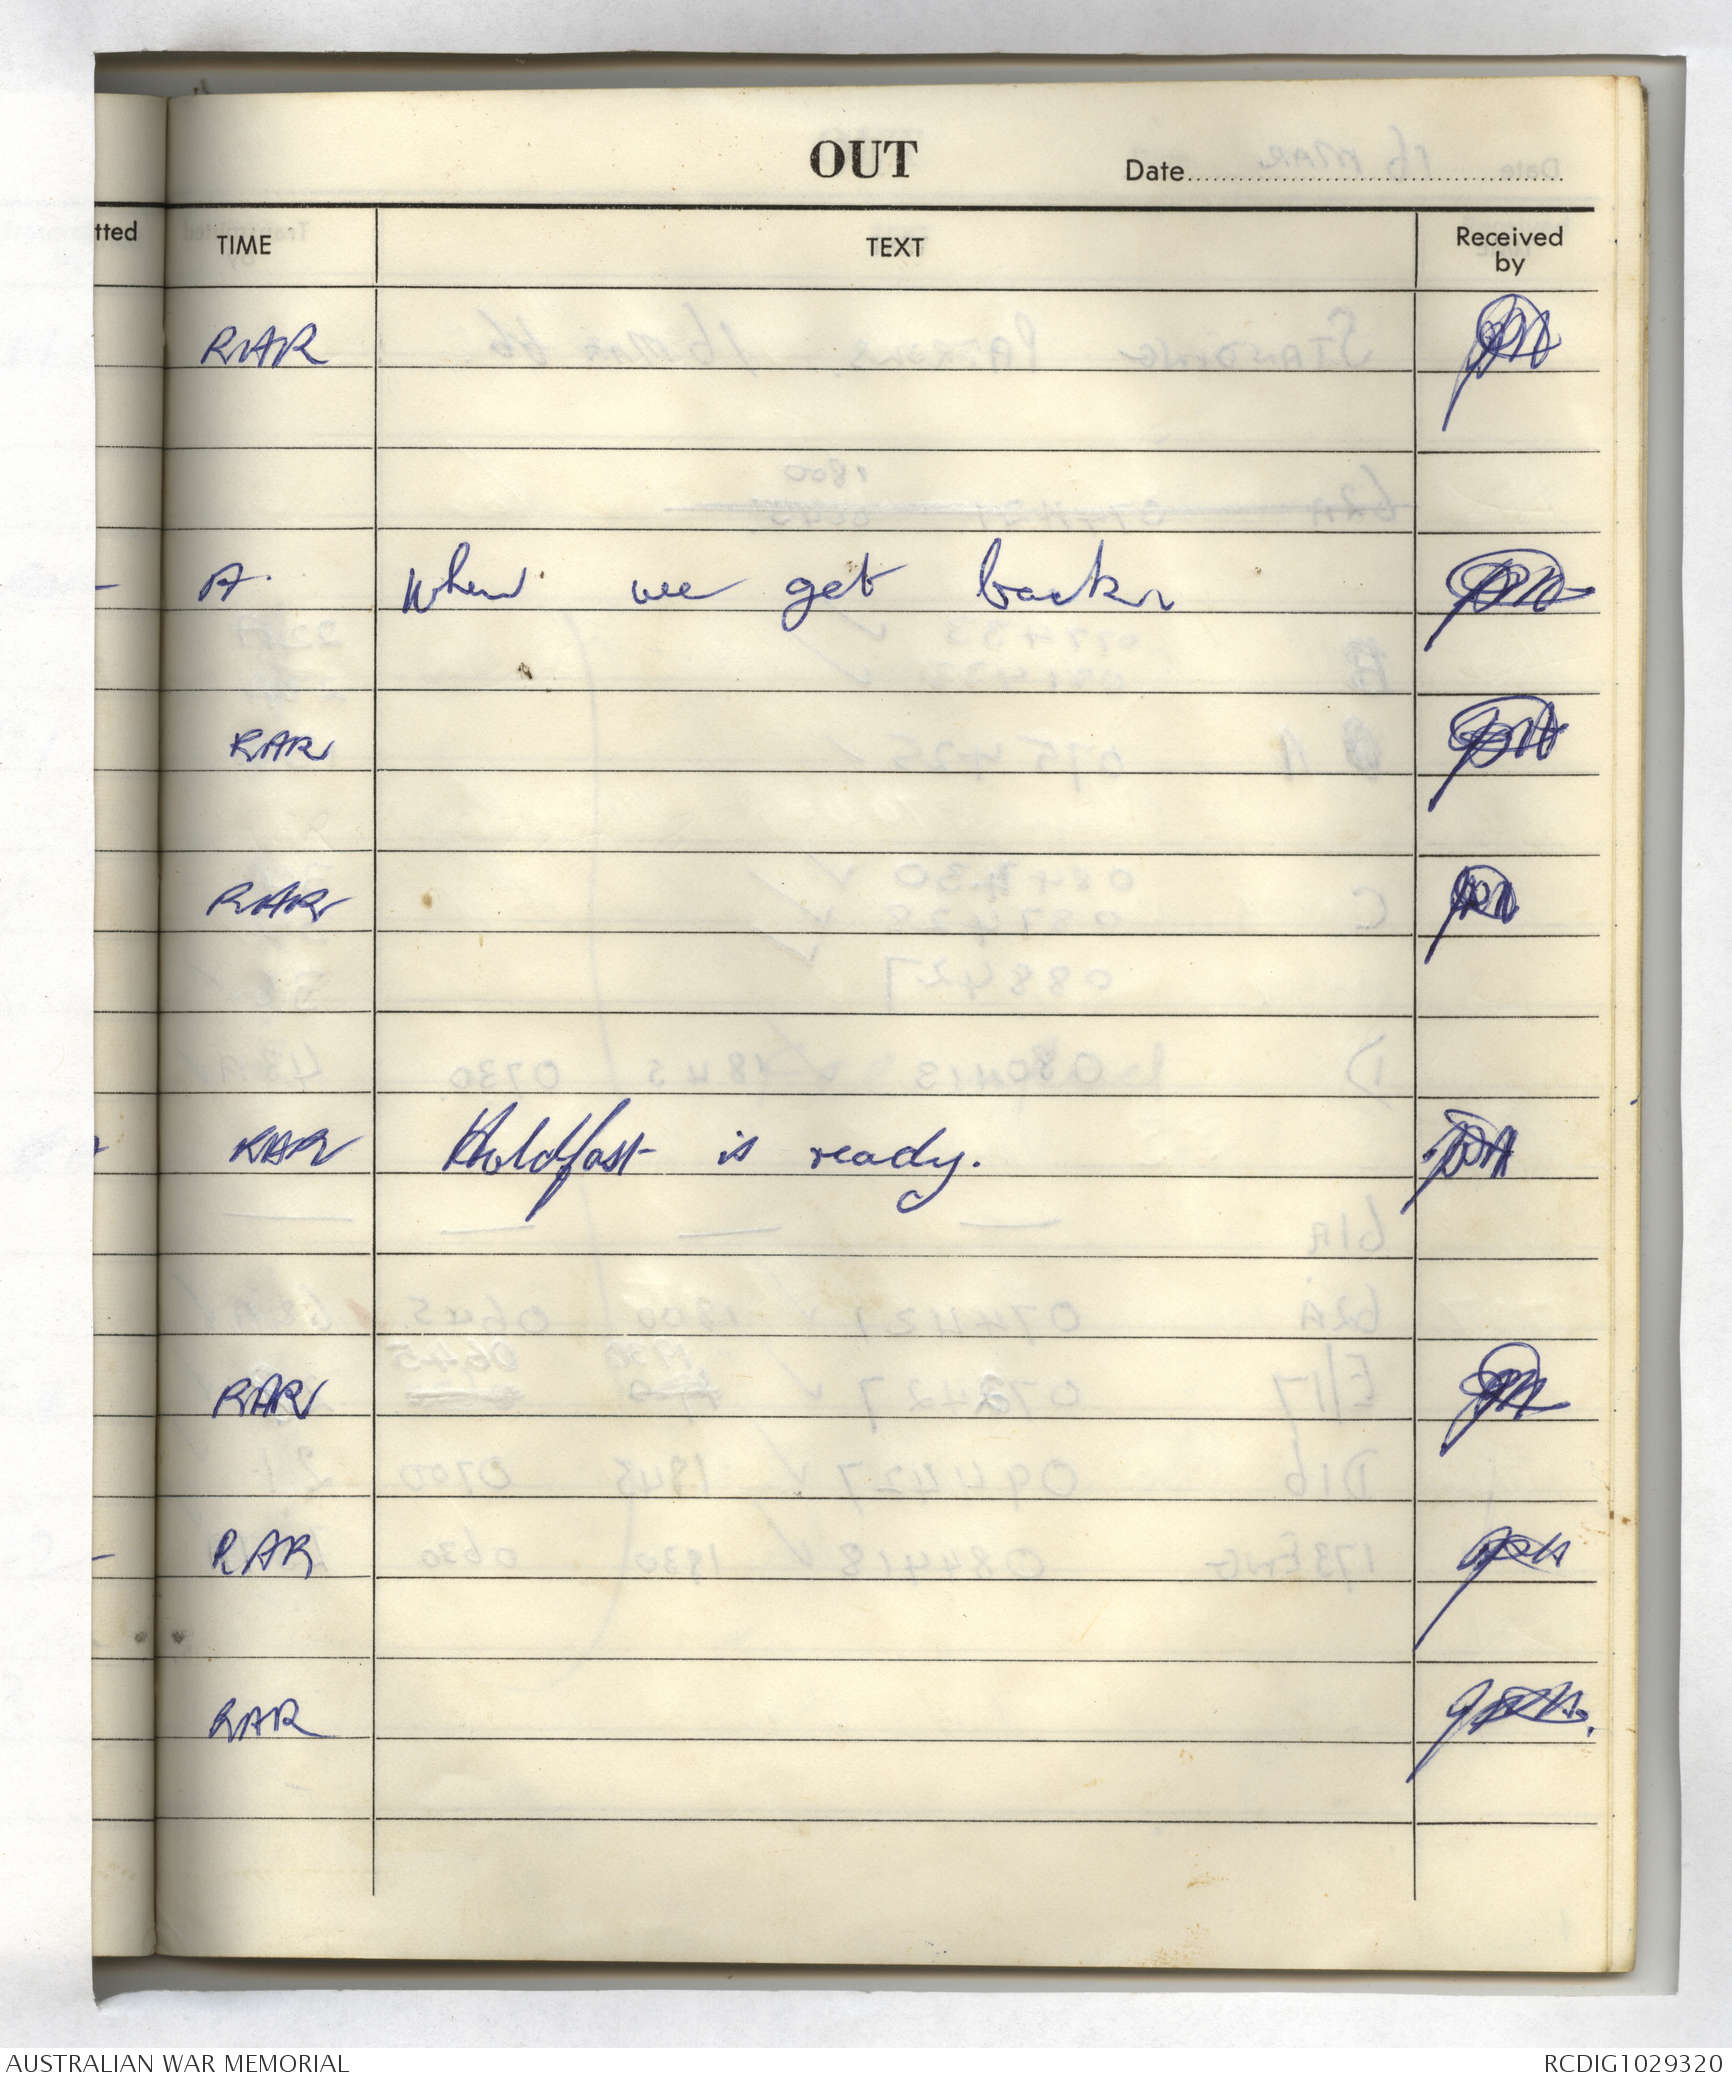 OUT
Date
tted
TIME
TEXT
Received
by
RAR
A. When we get back
RAR
RAR
RAR Holdfast is ready.
RAR
RAR
RAR
AUSTRALIAN WAR MEMORIAL
RCDIG1029320